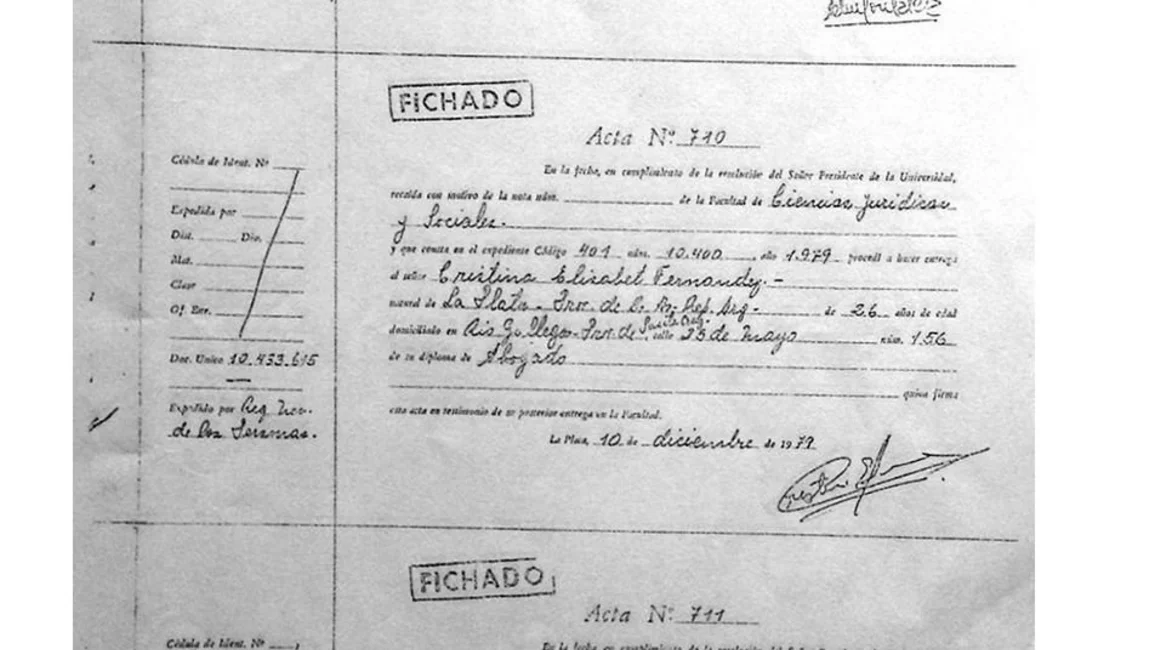 FICHADO
Acta Nº 710
En la fecha, en cumplimiento de la resolución del Señor Presidente de la Universidad,
recaída con motivo de la nota núm. de la Facultad de Ciencias Jurídicas
y Sociales.
y que consta en el expediente Código 401 núm. 10.400, año 1.979 procedí a hacer entrega
al señor Cristina Elisabet Fernandez.-
natural de La Plata - Prov. de B. As. Rep. Arg - de 26 años de edad
domiciliado en Rio Gallegos - Prov. de Santa Cruz - calle 25 de Mayo núm. 156
de su diploma de Abogado
quien firma
esta acta en testimonio de su posterior entrega en la Facultad.
La Plata, 10 de diciembre de 1979
Cédula de Ident. Nº
Expedida por
Dist. Dio.
Mat.
Clase
Of. Enr.
Doc. Unico 10.433.615
Expedido por Reg. Nac.
de las Personas.
FICHADO
Acta Nº 711
Cédula de Ident. Nº
En la fecha, en cumplimiento de la resolución del Señor Presidente de la Universidad,